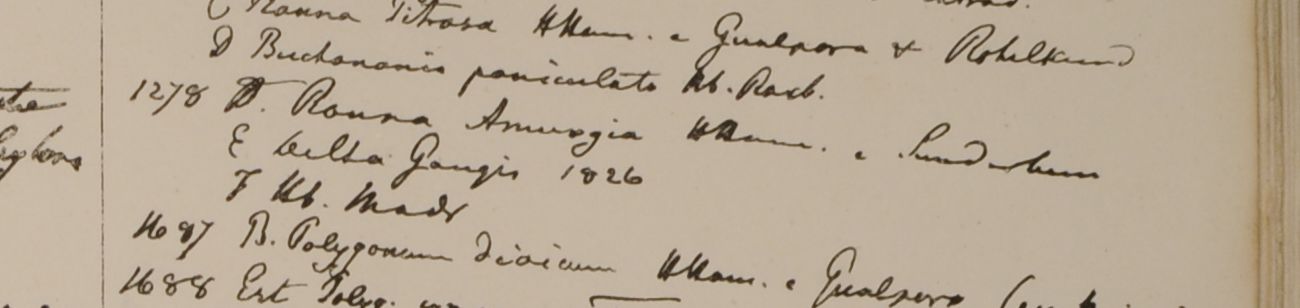 C Rouna Pitrasa HHam. e Gualpara & Rohilkund
D Buchanania paniculata Hb. Roxb.
1278 D. Rouna Amurgia HHam. e Sunderbun
E Delta Gangis 1826
F Hb. Madr
1687 B. Polygonum dioicum HHam. e Gualpara
1688 Ext Polyg.